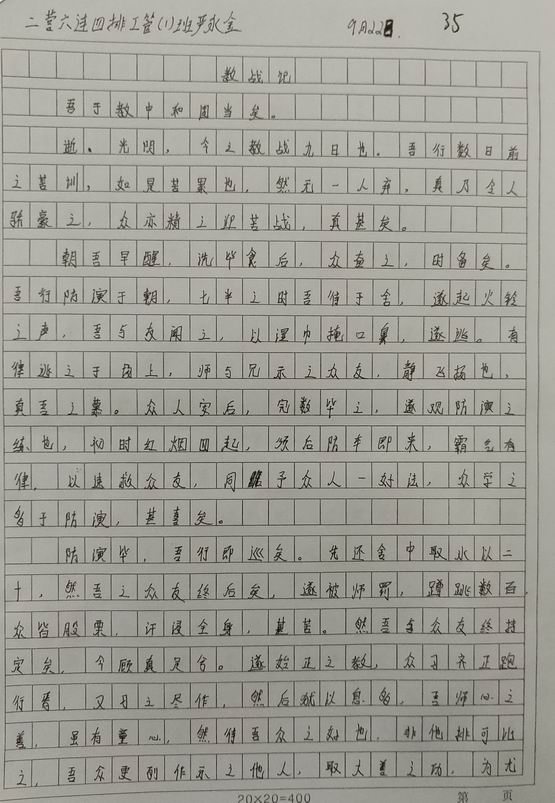 二营六连四排工管(1)班严永金 9月22日. 35
教战记
吾于教中和团当矣。
逝、光阴,今之教战九日也。吾行数日前
之苦训,如是苦累也,然无一人弃,真乃令人
骄豪之,众亦精之迎苦战,真甚矣。
朝吾早醒,洗毕食后,众查之,时备矣。
吾行防演于朝,七半之时吾侍于舍,遂起火铃
之声,吾与友闻之,以湿巾掩口鼻,遂逃。有
律逃之于场上,师与兄示之众友,静飞扬也,
真吾之慕。众人安后,完数毕之,遂观防演之
练也,初时红烟四起,须后防车即来,霸气有
律,以速救众友,同予众人一好法,众学之
多于防演,甚喜矣。
防演毕,吾行即巡矣。先还舍中取水以二
十,然吾之众友终后矣,遂被师罚,蹲跳数百,
众皆股栗,汗浸全身,甚苦。然吾与众友终持
定矣,今顾真足兮。遂始正之教,众习齐正跑
行焉,又习之尽作,然后就以息多,吾师心之
善,虽有童心,然待吾众之好也,非他排可比
之,吾众更列作示之他人,取大善之功,为尤
20×20=400 第 页